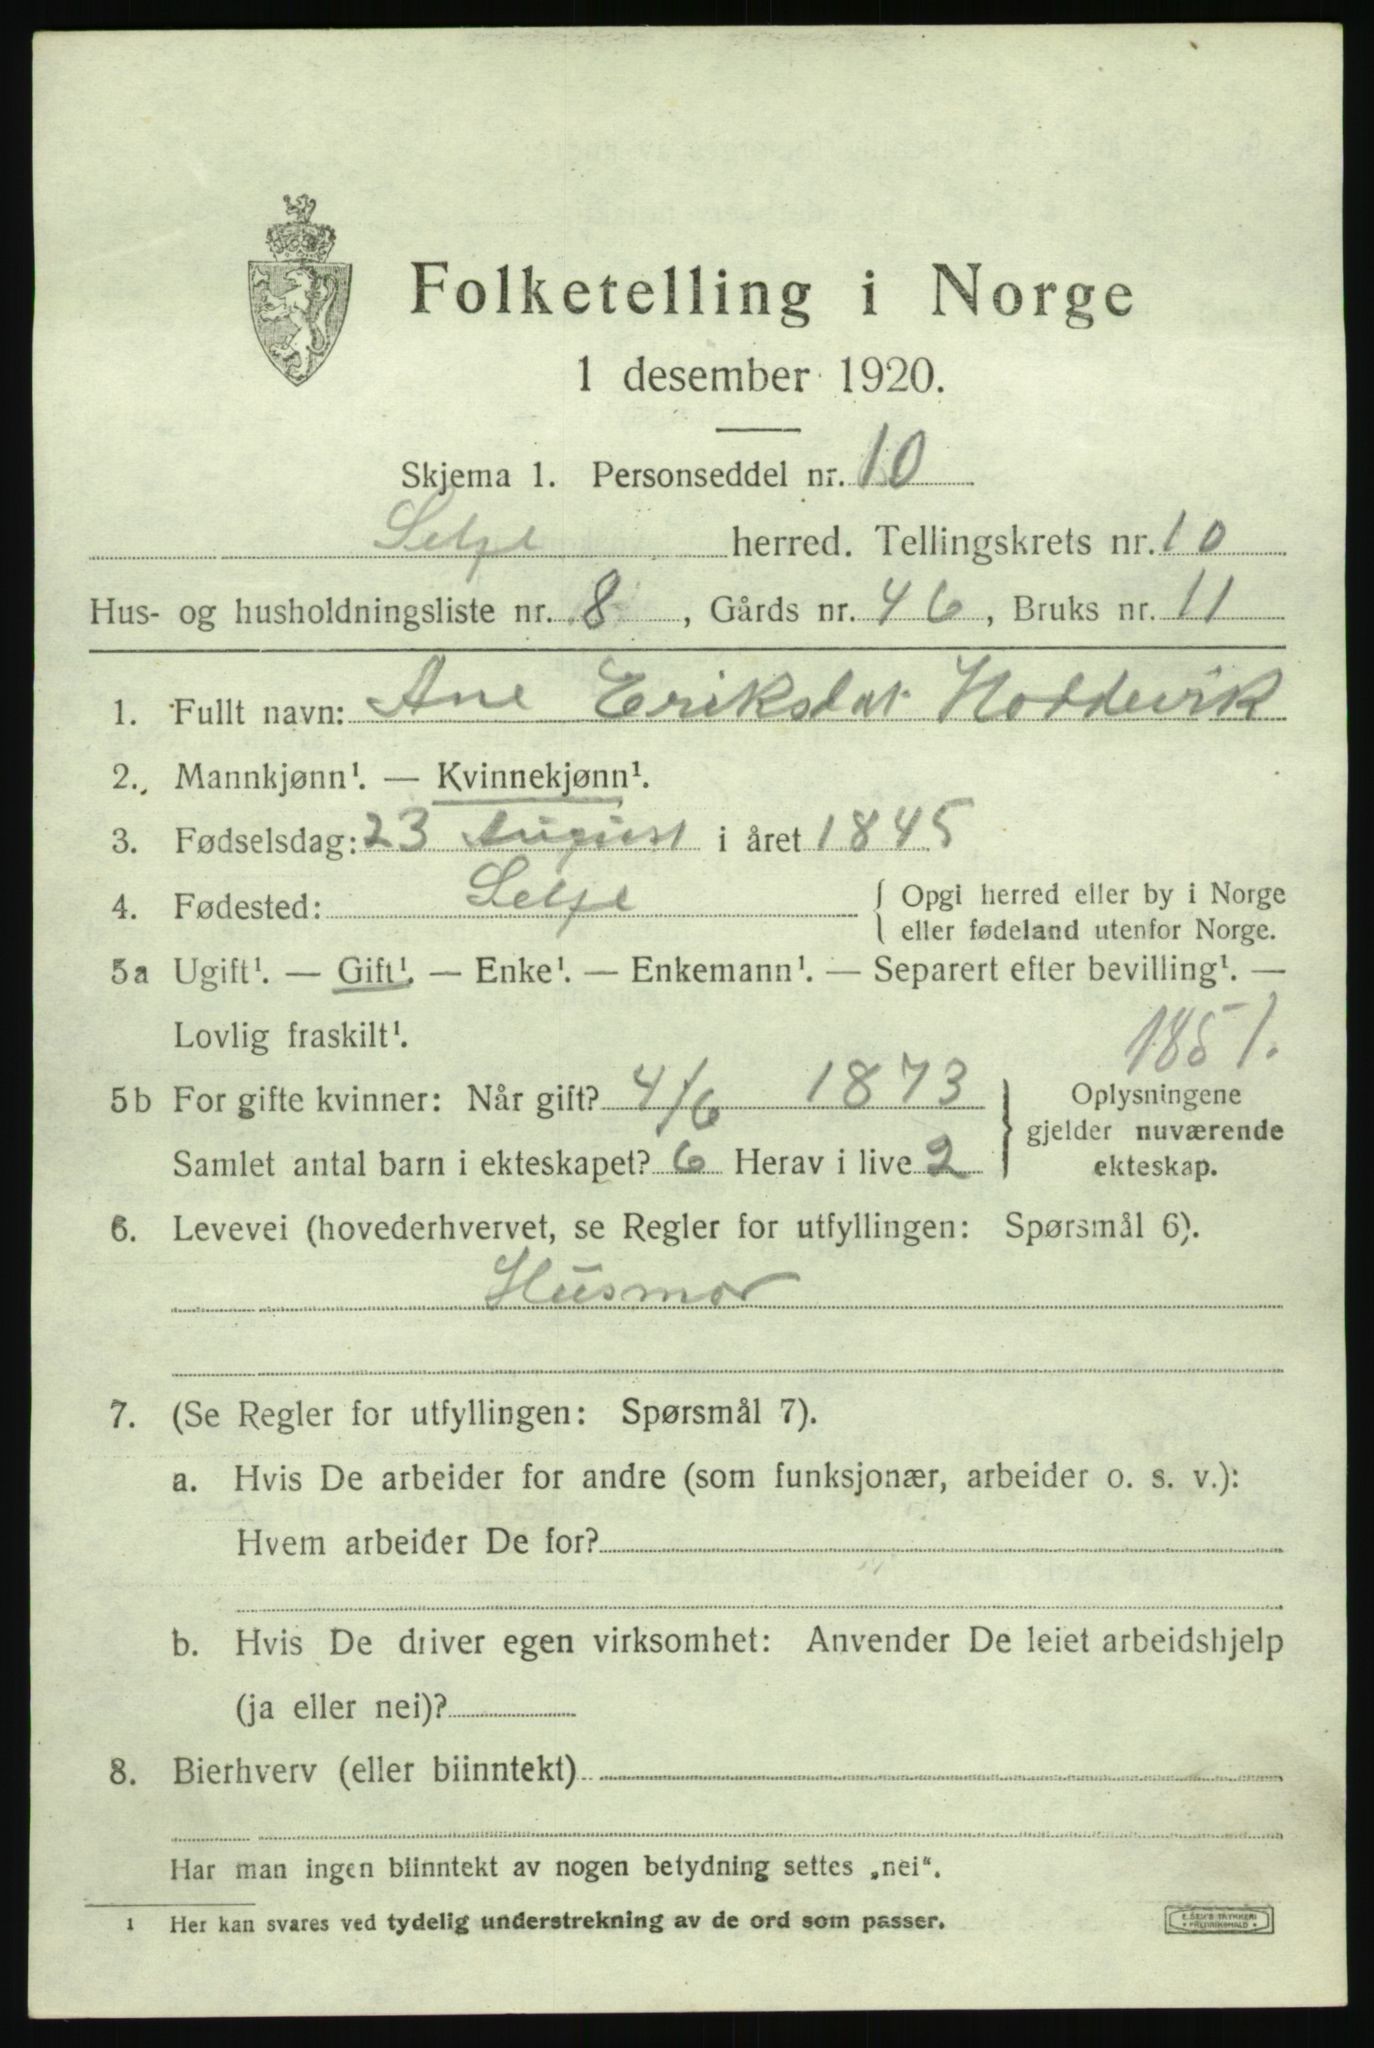 Folketelling i Norge
1 desember 1920.
Skjema 1. Personseddel nr. 10
Selje herred. Tellingskrets nr. 10
Hus- og husholdningsliste nr. 8, Gårds nr. 46, Bruks nr. 11
1. Fullt navn: Ane Eriksdat. Hoddevik
2. Mannkjønn¹. — Kvinnekjønn¹.
3. Fødselsdag: 23 August i året 1845
4. Fødested: Selje { Opgi herred eller by i Norge
eller fødeland utenfor Norge.
5a Ugift¹. — Gift¹. — Enke¹. — Enkemann¹. — Separert efter bevilling¹. —
Lovlig fraskilt¹.
1851.
5b For gifte kvinner: Når gift? 4/6 1873 } Oplysningene
gjelder nuværende
Samlet antal barn i ekteskapet? 6 Herav i live 2 ekteskap.
6. Levevei (hovederhvervet, se Regler for utfyllingen: Spørsmål 6).
Husmor
7. (Se Regler for utfyllingen: Spørsmål 7).
a. Hvis De arbeider for andre (som funksjonær, arbeider o. s. v.):
Hvem arbeider De for?
b. Hvis De driver egen virksomhet: Anvender De leiet arbeidshjelp
(ja eller nei)?
8. Bierhverv (eller biinntekt)
Har man ingen biinntekt av nogen betydning settes „nei“.
1 Her kan svares ved tydelig understrekning av de ord som passer.
E. SEM'S TRYKKERI
FREDRIKSHALD